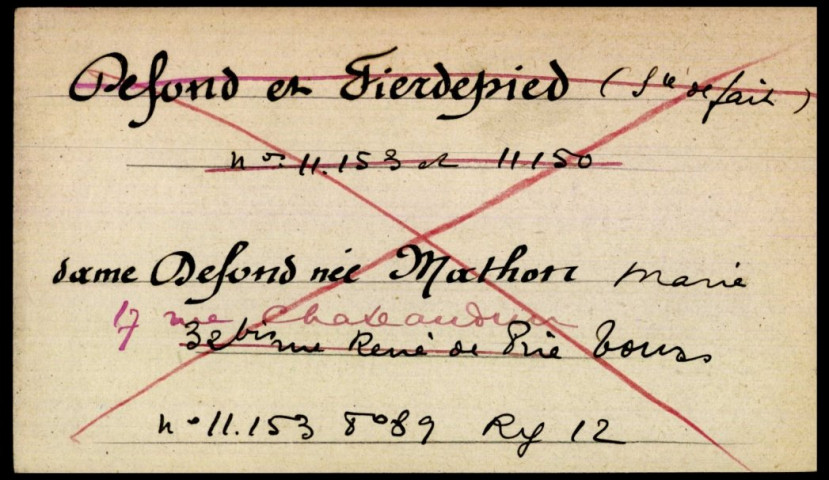 Defond et Fierdepied (Sté de fait)
nos 11.153 et 11150
dame Defond née Mathon Marie
17 rue Chateaudun
32 bis rue René de Prie Tours
no 11.153 fo 89 Rg 12